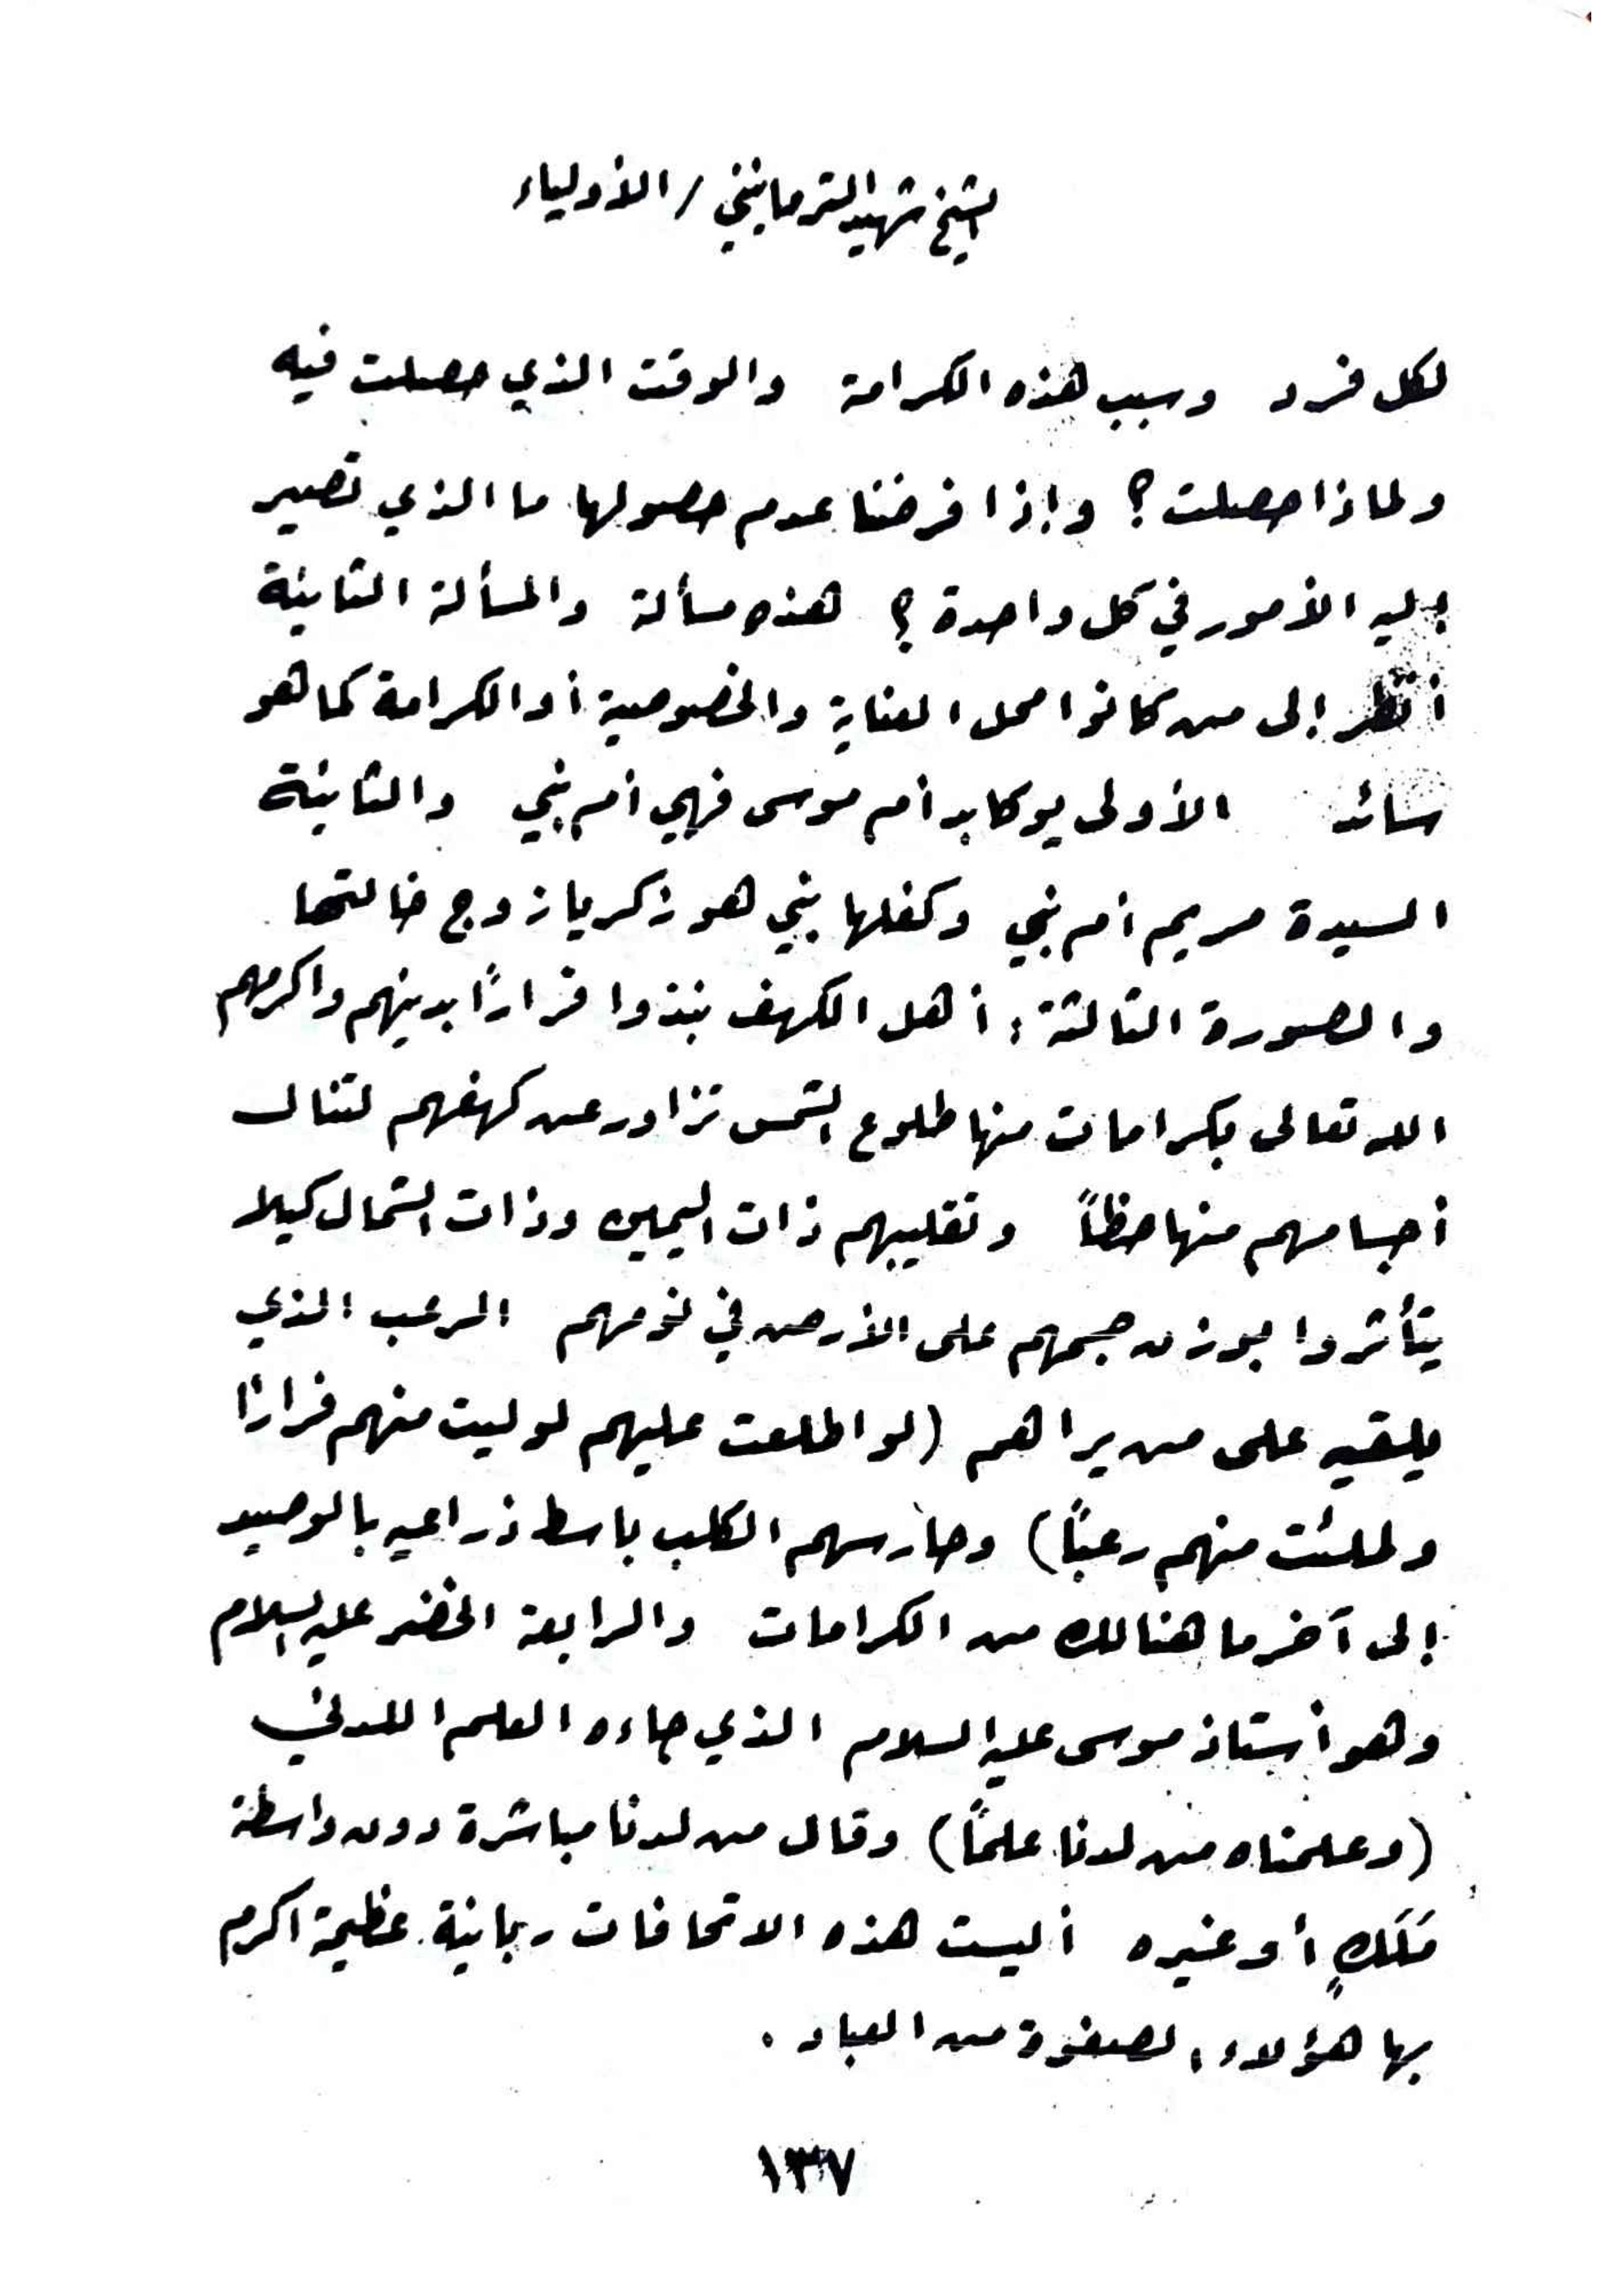 الشيخ شهيد الترمانيني / الأولياء
لكل فرد وسبب هذه الكرامة والوقت الذي حصلت فيه
ولماذا حصلت؟ وإذا فرضنا عدم حصولها ما الذي تصير
إليه الأمور في كل واحدة؟ هذه مسألة والمسألة الثانية
أنظر إلى من كانوا محل العناية والخصوصية أو الكرامة كما هو
سائد الأولى يوكابد أم موسى فهي أم نبي والثانية
السيدة مريم أم نبي وكفلها نبي هو زكريا زوج خالتها
والصورة الثالثة: أهل الكهف نبذوا فراراً بدينهم وأكرمهم
الله تعالى بكرامات منها طلوع الشمس تزاور عن كهفهم لتنال
أجسامهم منها حظاً وتقليبهم ذات اليمين وذات الشمال كيلا
يتأثروا بوزن جسمهم على الأرض في نومهم الرعب الذي
يلقيه على من يراهم (لو اطلعت عليهم لوليت منهم فراراً
ولملئت منهم رعباً) وحارسهم الكلب باسط ذراعيه بالوصيد
إلى آخر ما هنالك من الكرامات والرابعة الخضر عليه السلام
وهو أستاذ موسى عليه السلام الذي جاءه العلم اللدني
(وعلمناه من لدنا علماً) وقال من لدنا مباشرة دون واسطة
مَلَكٍ أو غيره أليست هذه الاتحافات ربانية عظيمة اكرم
بها هؤلاء الصفوة من العباد .
١٣٧